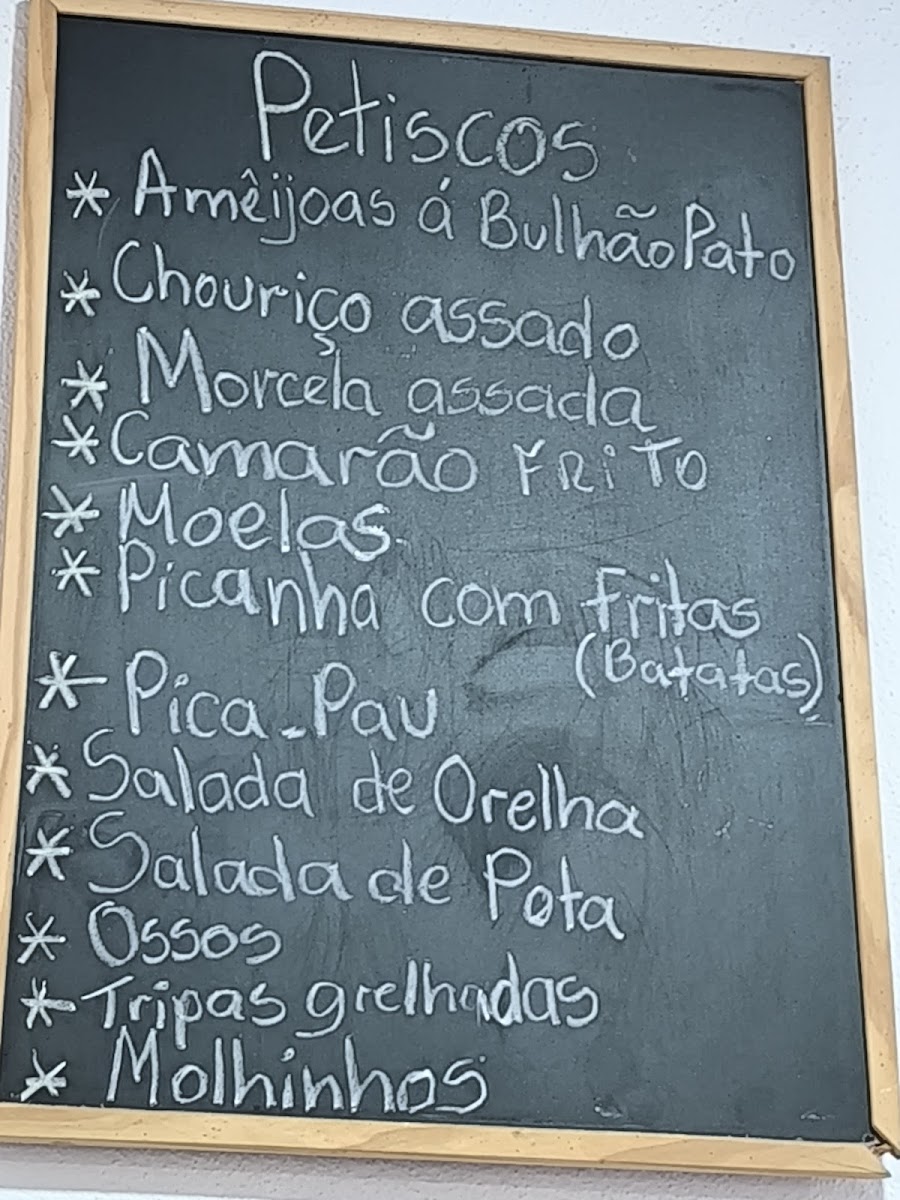 Petiscos
* Amêijoas á Bulhão Pato
* Chouriço assado
* Morcela assada
* Camarão FRiTO
* Moelas
* Picanha com fritas
(Batatas)
* Pica-Pau
* Salada de Orelha
* Salada de Pota
* Ossos
* Tripas grelhadas
* Molhinhos